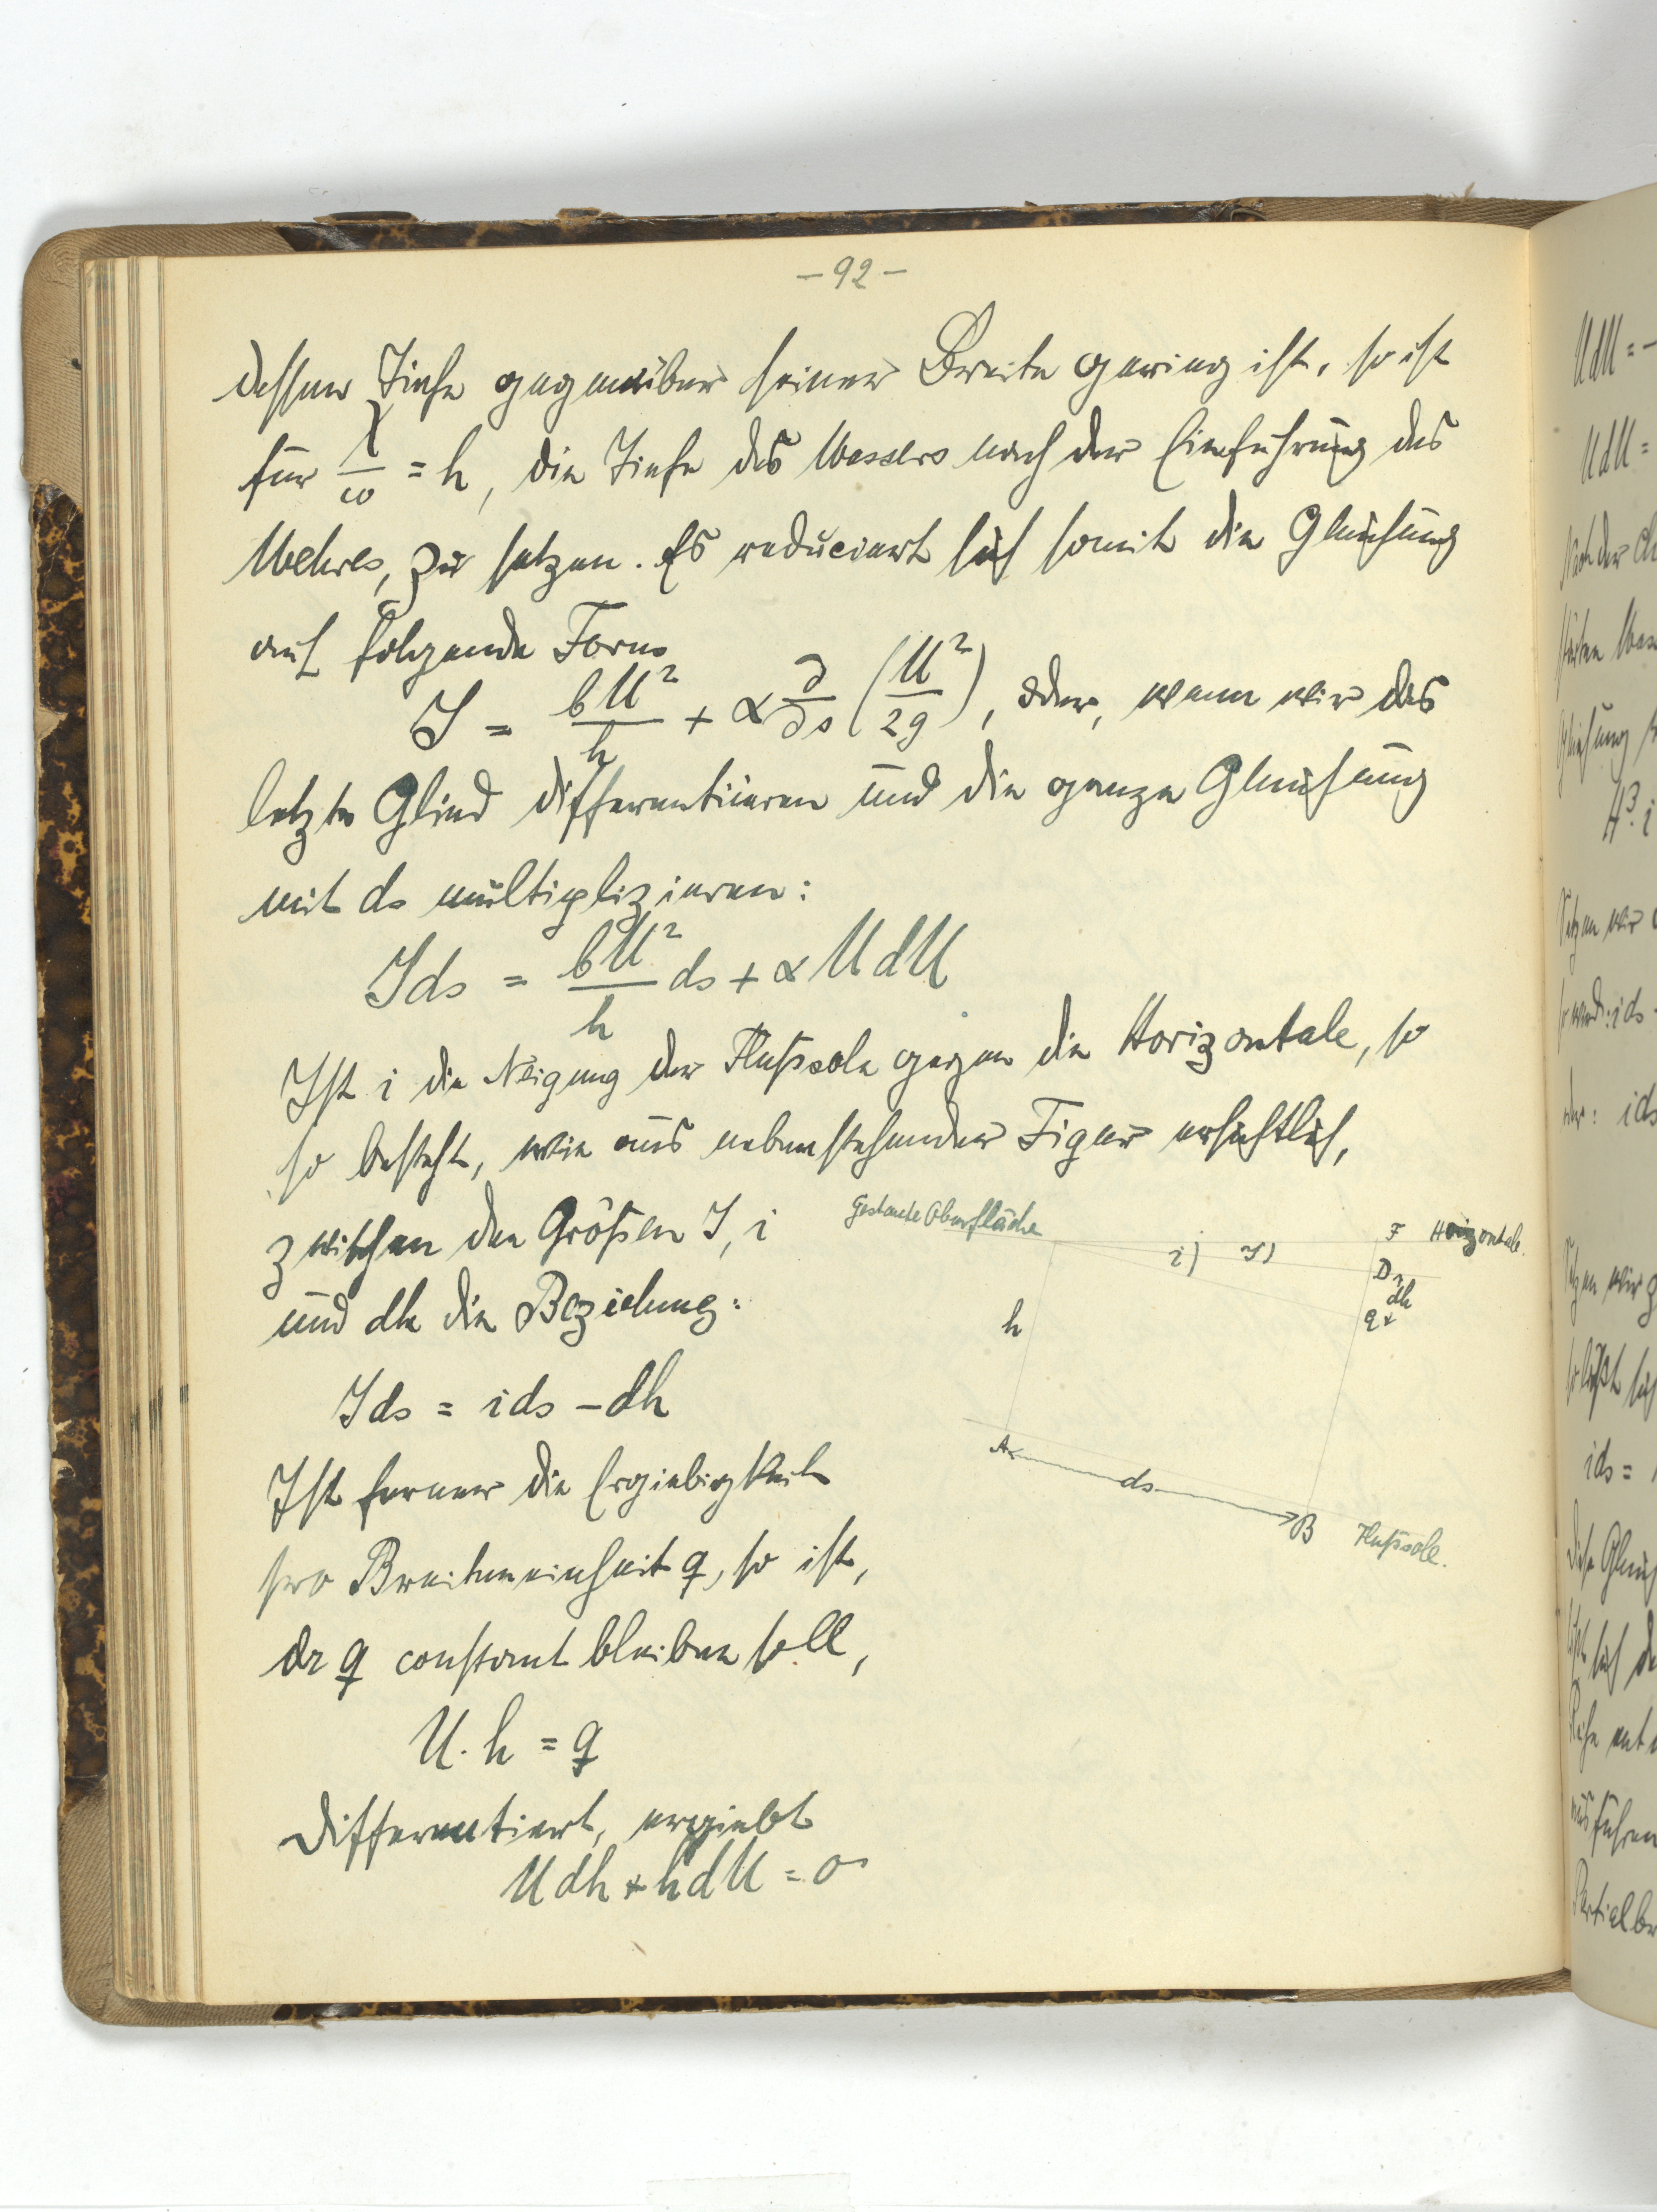 – 92 –
dessen Tiefe gegenüber seiner Breite gering ist, so ist
für χ/ω = h, die Tiefe des Wassers nach der Einführung des
Wehres, zu setzen. Es reduciert sich somit die Gleichung
auf folgende Form
J = bU²/h + α ∂/∂s (U²/2g), oder, wenn wir das
letzte Glied differentiieren und die ganze Gleichung
mit ds multiplizieren:
Jds = bU²/h ds + α U dU
Ist i die Neigung der Flußsole gegen die Horizontale, so
so besteht, wie aus nebenstehender Figur ersichtlich,
zwischen den Größen J, i
und dh die Beziehung:
Jds = ids – dh
Ist ferner die Ergiebigkeit
pro Breiteneinheit q, so ist,
da q constant bleiben soll,
U . h = q
differentiert, ergiebt
U dh + h dU = 0
Gestaute Oberfläche
i) J)
F Horizontale.
D
dh
h
A
ds
B Flußsole.
UdU = –
UdU =
H³. i
ids =